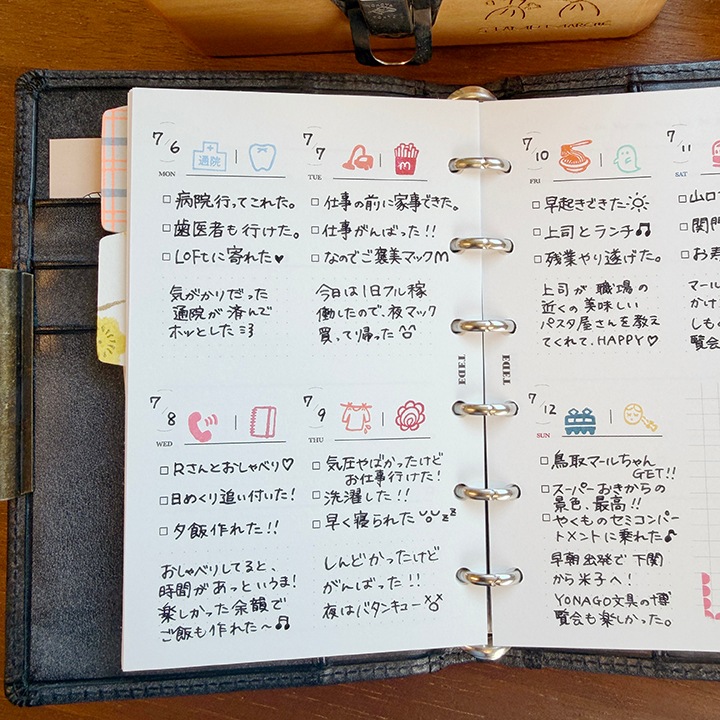 7/6
MON
通院
□ 病院行ってこれた。
□ 歯医者も行けた。
□ LOFTに寄れた♥
気がかりだった
通院が済んで
ホッとした
7/7
TUE
m
□ 仕事の前に家事できた。
□ 仕事がんばった!!
□ なのでご褒美マックM
今日は1日フル稼
働したので、夜マック
買って帰った
7/8
WED
□ Rさんとおしゃべり♡
□ 日めくり追い付いた!
□ 夕飯作れた!!
おしゃべりしてると、
時間があっというま!
楽しかった余韻で
ご飯も作れた〜♫
7/9
THU
□ 気圧やばかったけど
お仕事行けた!
□ 洗濯した!!
□ 早く寝られた zz
しんどかったけど
がんばった!!
夜はバタンキュー
EDiT
EDiT
7/10
FRI
□ 早起きできた
□ 上司とランチ♫
□ 残業やり遂げた。
上司が職場の
近くの美味しい
パスタ屋さんを教え
てくれて、HAPPY♡
7/12
SUN
□ 鳥取マールちゃん
GET!!
□ スーパーおきからの
景色、最高!!
□ やくものセミコンパー
トメントに乗れた♪
早朝出発で下関
から米子へ!
YONAGO文具の博
覧会も楽しかった。
7/11
SAT
□ 山口
□ 関門
□ お寿
マール
かけ
しも
覧会